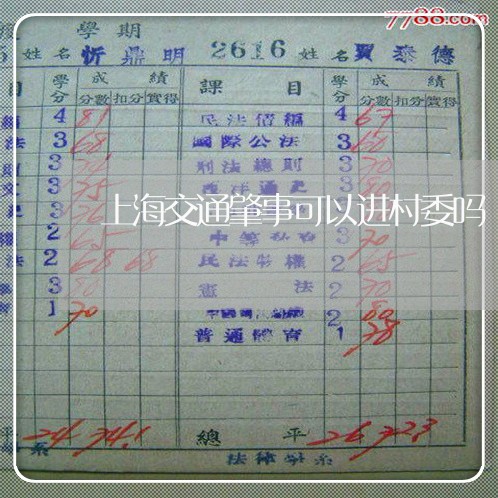 7788.com
學期
5 姓名 忻鼎明 2616 姓名 賈泰德
目 學分 成績 課目 學分 成績
分數 扣分 實得 分數 扣分 實得
4 81 民法債編 4 67
法 3 68 國際公法 3 60
3 刑法總則 3 70
3 75 西洋通史 3 80
上海交通肇事可以进村委吗
2 65 3 70
法 2 68 68 民法物權 2 65
3 80 憲法 2 70
1 70 2 80
普通體育 1 78
平 24 74.1 總平 26 72.3
系 法律學系